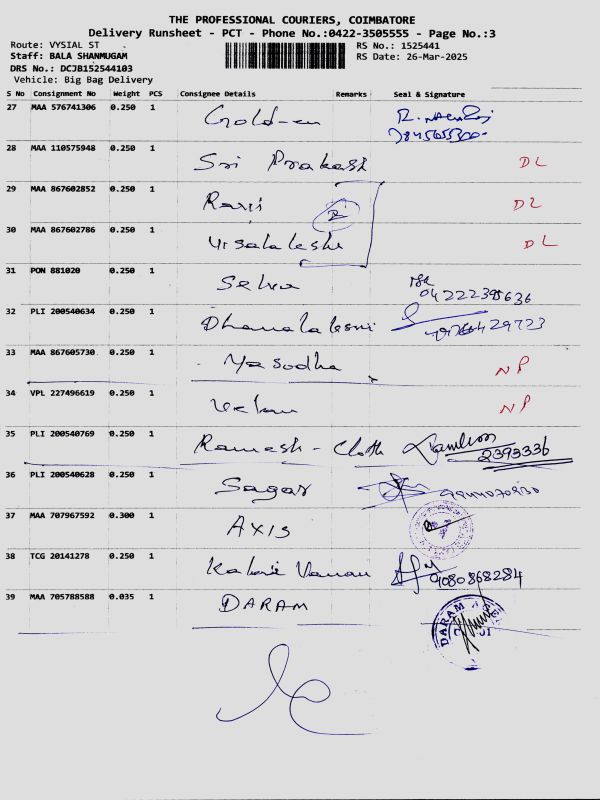 THE PROFESSIONAL COURIERS, COIMBATORE
Delivery Runsheet - PCT - Phone No.:0422-3505555 - Page No.:3
Route: VYSIAL ST
RS No.: 1525441
Staff: BALA SHANMUGAM
RS Date: 26-Mar-2025
DRS No.: DCJB152544103
Vehicle: Big Bag Delivery
S No Consignment No Weight PCS Consignee Details Remarks Seal & Signature
27 MAA 576741306 0.250 1 Golden
28 MAA 110575948 0.250 1 Sri Prakash DL
29 MAA 867602852 0.250 1 Ravi DL
30 MAA 867602786 0.250 1 Visalakshi DL
31 PON 881020 0.250 1 Selva
04222395636
32 PLI 200540634 0.250 1 Dhanalakshmi
33 MAA 867605730 0.250 1 Yasodha NP
34 VPL 227496619 0.250 1 NP
35 PLI 200540769 0.250 1 Ramesh - Cloth
2393336
36 PLI 200540628 0.250 1 Sagar
37 MAA 707967592 0.300 1 AXIS
38 TCG 20141278 0.250 1
9080868284
39 MAA 705788588 0.035 1 DARAM
DARAM